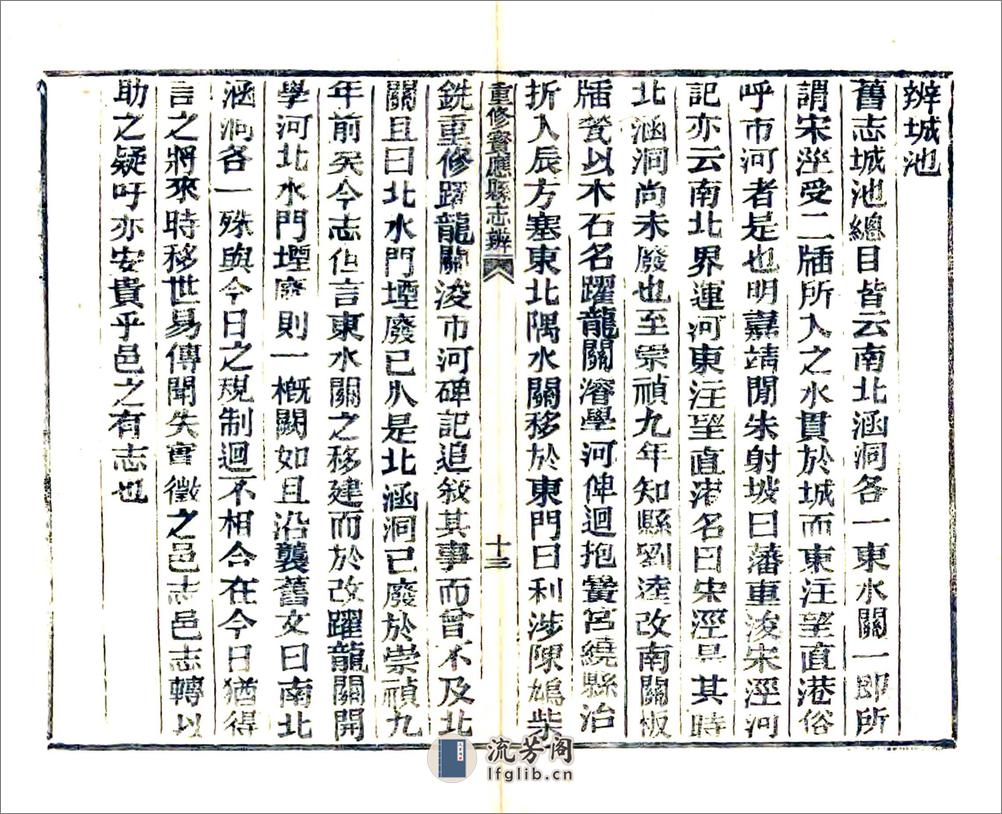 辨城池
舊志城池總目皆云南北涵洞各一東水關一即所
謂宋涇受二牐所入之水貫於城而東注望直港俗
呼市河者是也明嘉靖閒朱射坡曰藩重浚宋涇河
記亦云南北界運河東注望直港名曰宋涇是其時
北涵洞尚未廢也至崇禎九年知縣劉逵改南關板
牐甃以木石名躍龍關濬學河俾迴抱黌宮繞縣治
折入辰方塞東北隅水關移於東門曰利涉陳鴆柴
重修寶應縣志辨
十三
銑重修躍龍關浚市河碑記追敘其事而曾不及北
關且曰北水門堙廢已久是北涵洞已廢於崇禎九
年前矣今志但言東水關之移建而於改躍龍關開
學河北水門堙廢則一槪闕如且沿襲舊文曰南北
涵洞各一殊與今日之規制迴不相合在今日猶得
言之將來時移世易傳聞失實徵之邑志邑志轉以
助之疑吁亦安貴乎邑之有志也
流芳阁
lfglib.cn